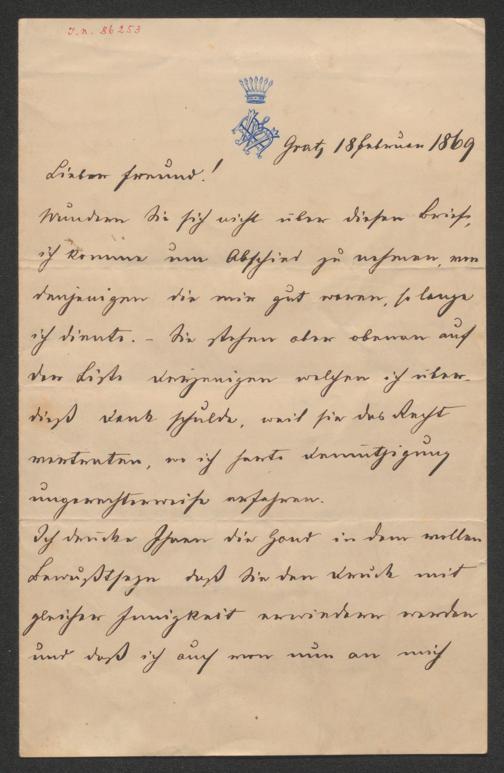 J.n. 86253
Gratz 18 februar 1869
Lieber Freund!
Wundern Sie sich nicht über diesen Brief,
ich komme um Abschied zu nehmen, von
denjenigen die mir gut waren, so lange
ich diente. – Sie stehen aber obenan auf
der Liste derjenigen welchen ich über-
dieß Dank schulde, weil sie das Recht
vertraten, wo ich harte Demüthigung
ungerechterweise erfahren.
Ich drücke Ihnen die Hand in dem vollen
Bewußtseyn daß Sie den Druck mit
gleicher Innigkeit erwiedern werden
und daß ich auch von nun an mich